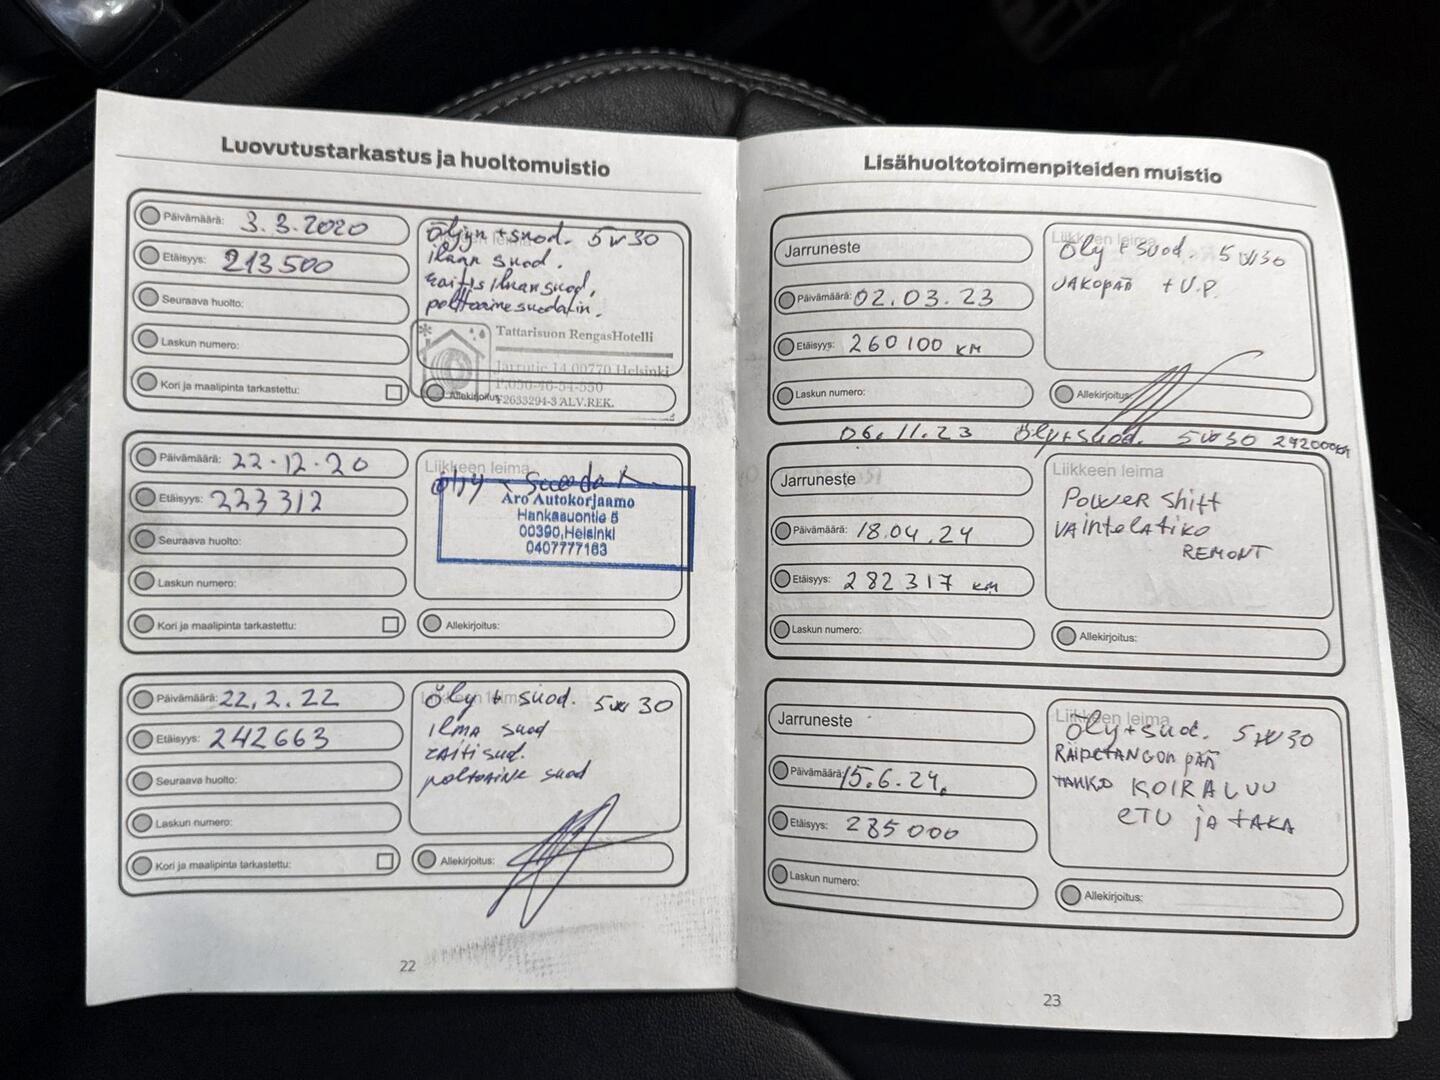 Luovutustarkastus ja huoltomuistio
Päivämäärä: 3.3.2020
Etäisyys: 213500
Seuraava huolto:
Laskun numero:
Kori ja maalipinta tarkastettu:
Liikkeen leima
Öljyn + suod. 5w30
ilman suod.
raitis ilman suod.
polttoainesuodatin.
Tattarisuon RengasHotelli
Jarrutie 14 00770 Helsinki
P.050-46-54-550
Y2633294-3 ALV.REK.
Allekirjoitus:
Päivämäärä: 22.12.20
Etäisyys: 223312
Seuraava huolto:
Laskun numero:
Kori ja maalipinta tarkastettu:
Liikkeen leima
öljy +
Aro Autokorjaamo
Hankasuontie 5
00390,Helsinki
0407777163
Allekirjoitus:
Päivämäärä: 22.2.22
Etäisyys: 242663
Seuraava huolto:
Laskun numero:
Kori ja maalipinta tarkastettu:
Liikkeen leima
Öly + suod. 5w30
ilma suod
raitisud.
poltoaine suod
Allekirjoitus:
22
Lisähuoltotoimenpiteiden muistio
Jarruneste
Päivämäärä: 02.03.23
Etäisyys: 260100 KM
Laskun numero:
Liikkeen leima
Öly + suod. 5w30
JAKOPÄÄ + V.P.
Allekirjoitus:
06.11.23 Öly+suod. 5w30 272000KM
Jarruneste
Päivämäärä: 18.04.24
Etäisyys: 282317 KM
Laskun numero:
Liikkeen leima
POWER Shift
VAihtelAtiKO
REMONT
Allekirjoitus:
Jarruneste
Päivämäärä: 15.6.24.
Etäisyys: 285000
Laskun numero:
Liikkeen leima
Öly+suod. 5W30
RAIDETANGON PÄÄ
KOIRALUU
ETU jA TAKA
Allekirjoitus:
23